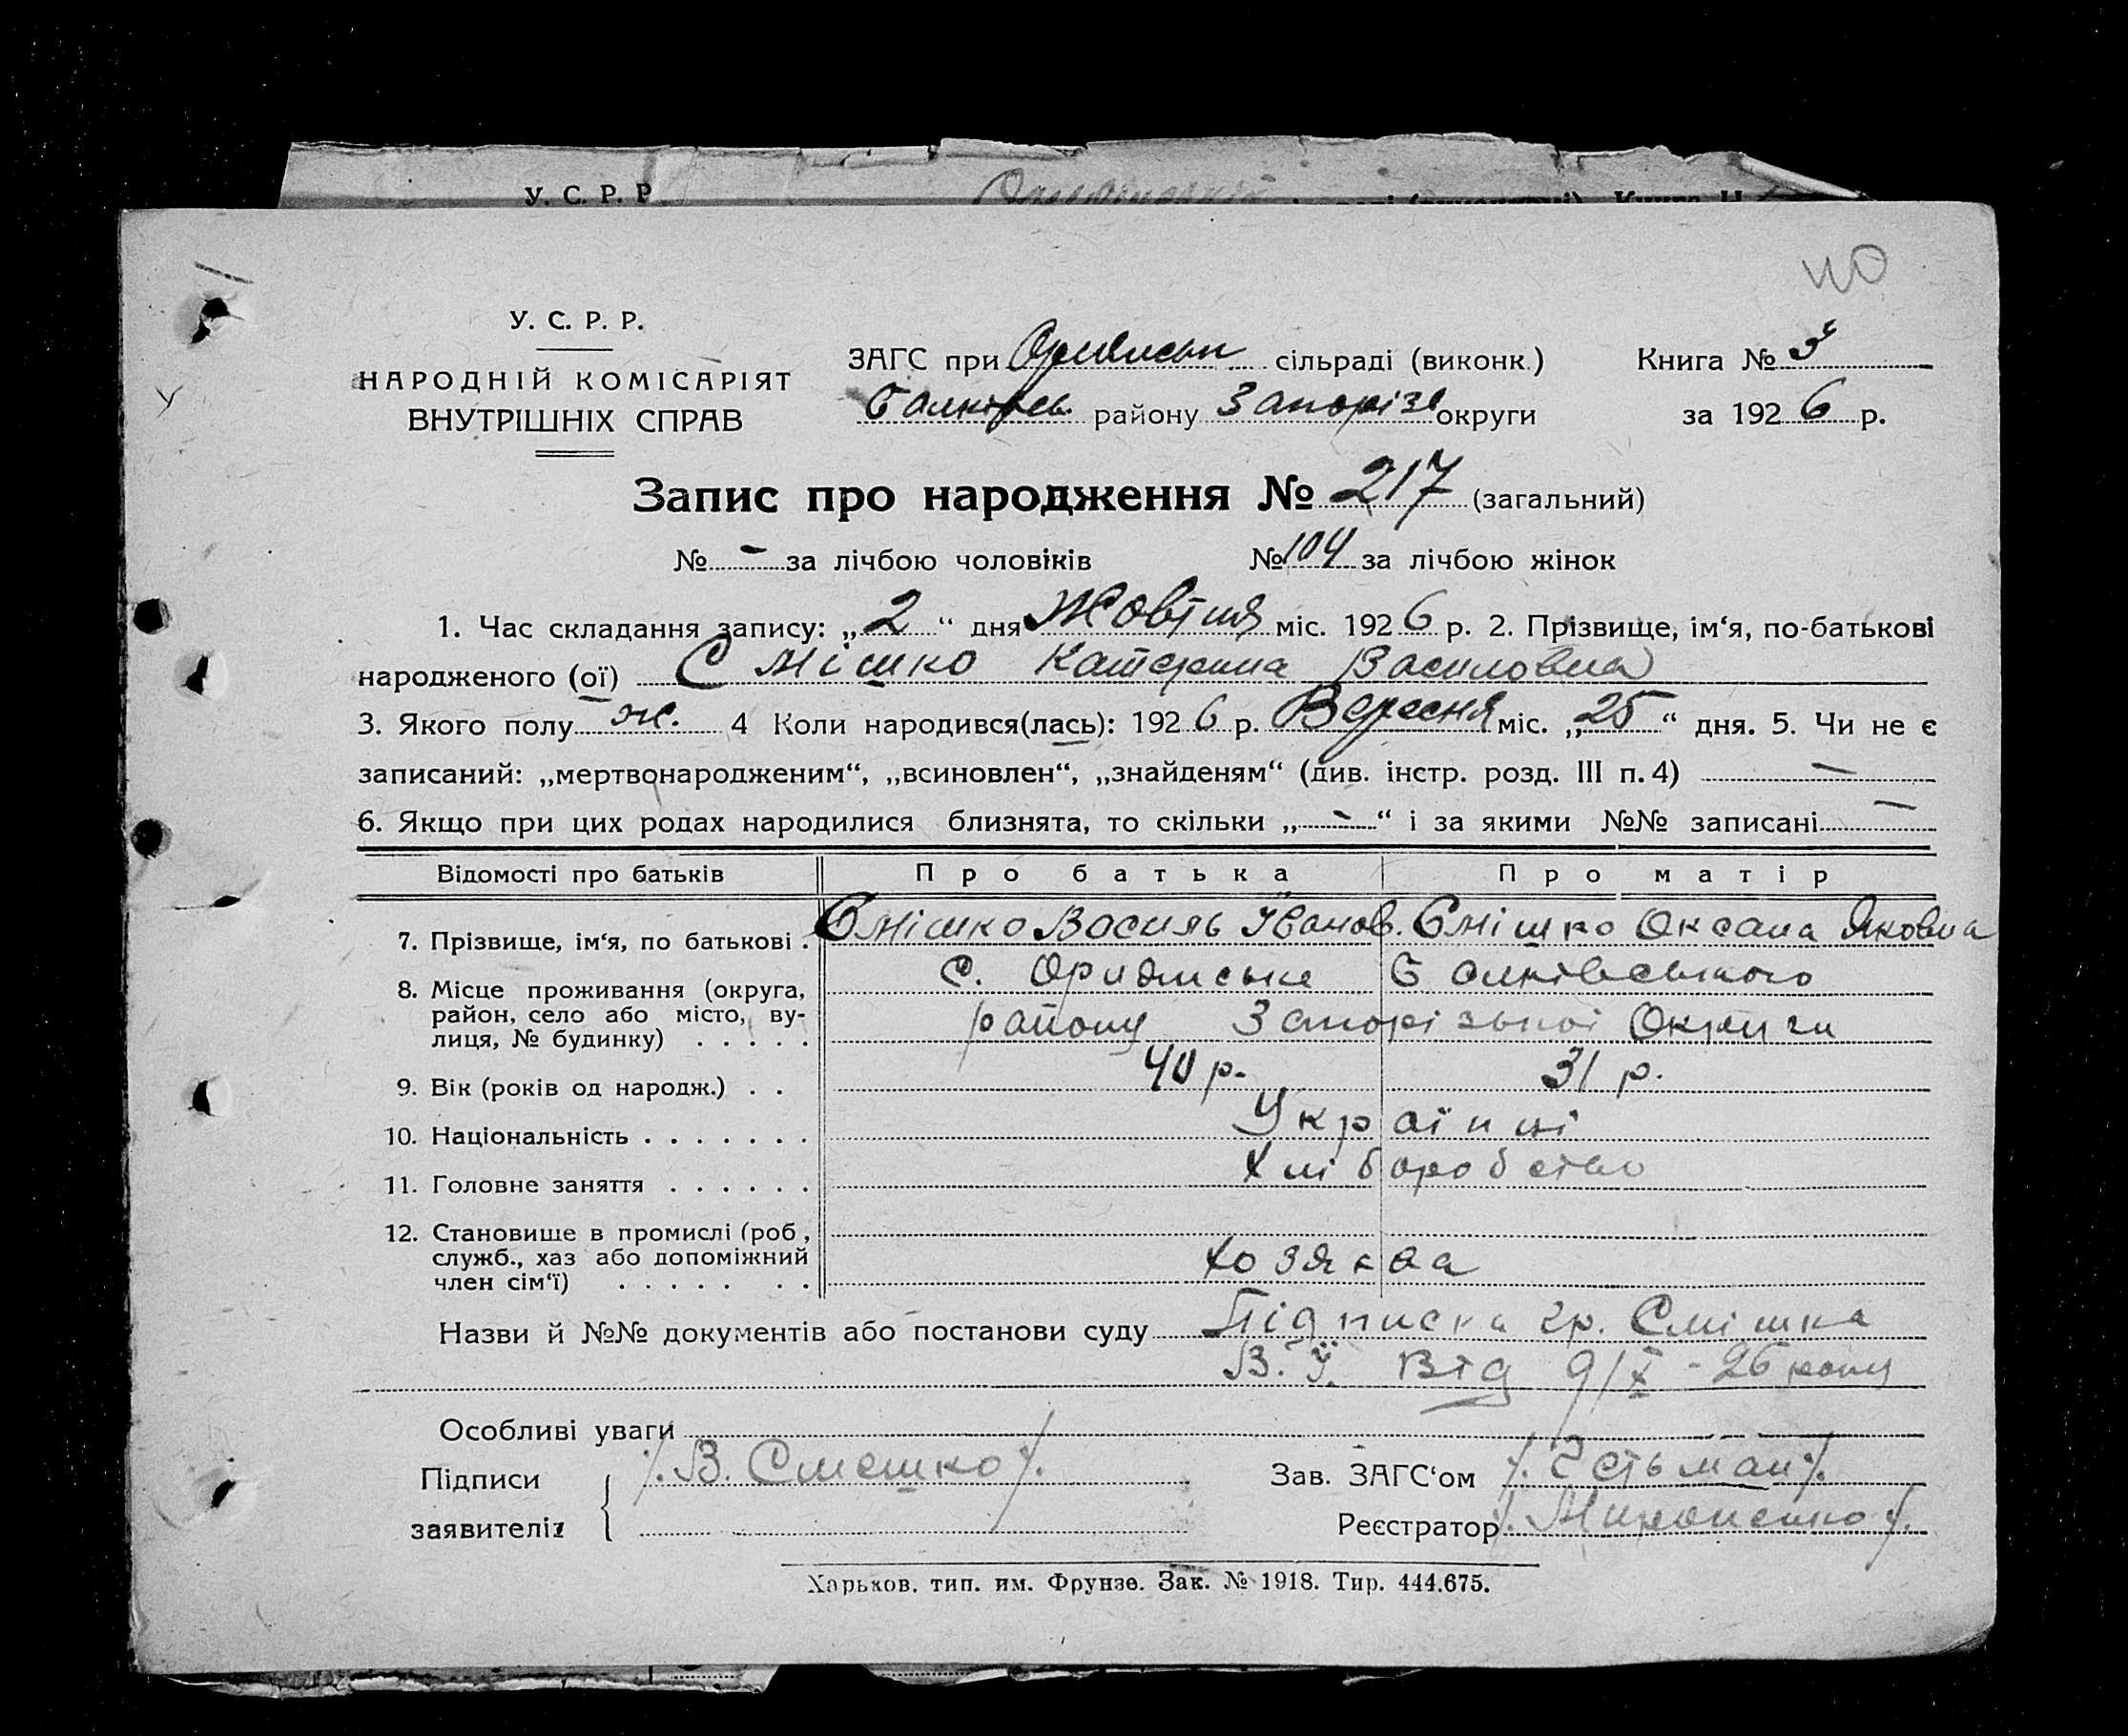 У. С. Р. Р.
У. С. Р. Р.
НАРОДНІЙ КОМІСАРІЯТ
ВНУТРІШНІХ СПРАВ
ЗАГС при сільраді (виконк.) Книга № 3
району Запорізь округи за 1926 р.
Запис про народження № 217 (загальний)
№ - за лічбою чоловіків № 104 за лічбою жінок
1. Час складання запису: „2“ дня Жовтня міс. 1926 р. 2. Прізвище, ім‘я, по-батькові
народженого (ої) Смішко Катерина Василовна
3. Якого полу ж. 4 Коли народився(лась): 1926 р. Вересня міс. „25“ дня. 5. Чи не є
записаний: „мертвонародженим“, „всиновлен“, „знайденям“ (див. інстр. розд. III п. 4) —
6. Якщо при цих родах народилися близнята, то скільки „-“ і за якими №№ записані —
Відомості про батьків Про батька Про матір
7. Прізвище, ім‘я, по батькові . Смішко Василь Іванов. Смішко Оксана Яковна
8. Місце проживання (округа, район, село або місто, ву- лиця, № будинку) . . . . . с.
району Запорізької Округи
9. Вік (років од народж.) . . 40 р. 31 р.
10. Національність . . . . . . . Українці
11. Головне заняття . . . . . . Хліборобство
12. Становище в промислі (роб, служб., хаз або допоміжний член сім‘ї) . . . . . . . хозяєва
Назви й №№ документів або постанови суду Підписка гр. Смішка
В. Ї. від 9/X - 26 року
Особливі уваги
Підписи заявителів /.В. Смешко/. Зав. ЗАГС‘ом
Реєстратор /.Мироненко/.
Харьков. тип. им. Фрунзе. Зак. № 1918. Тир. 444.675.